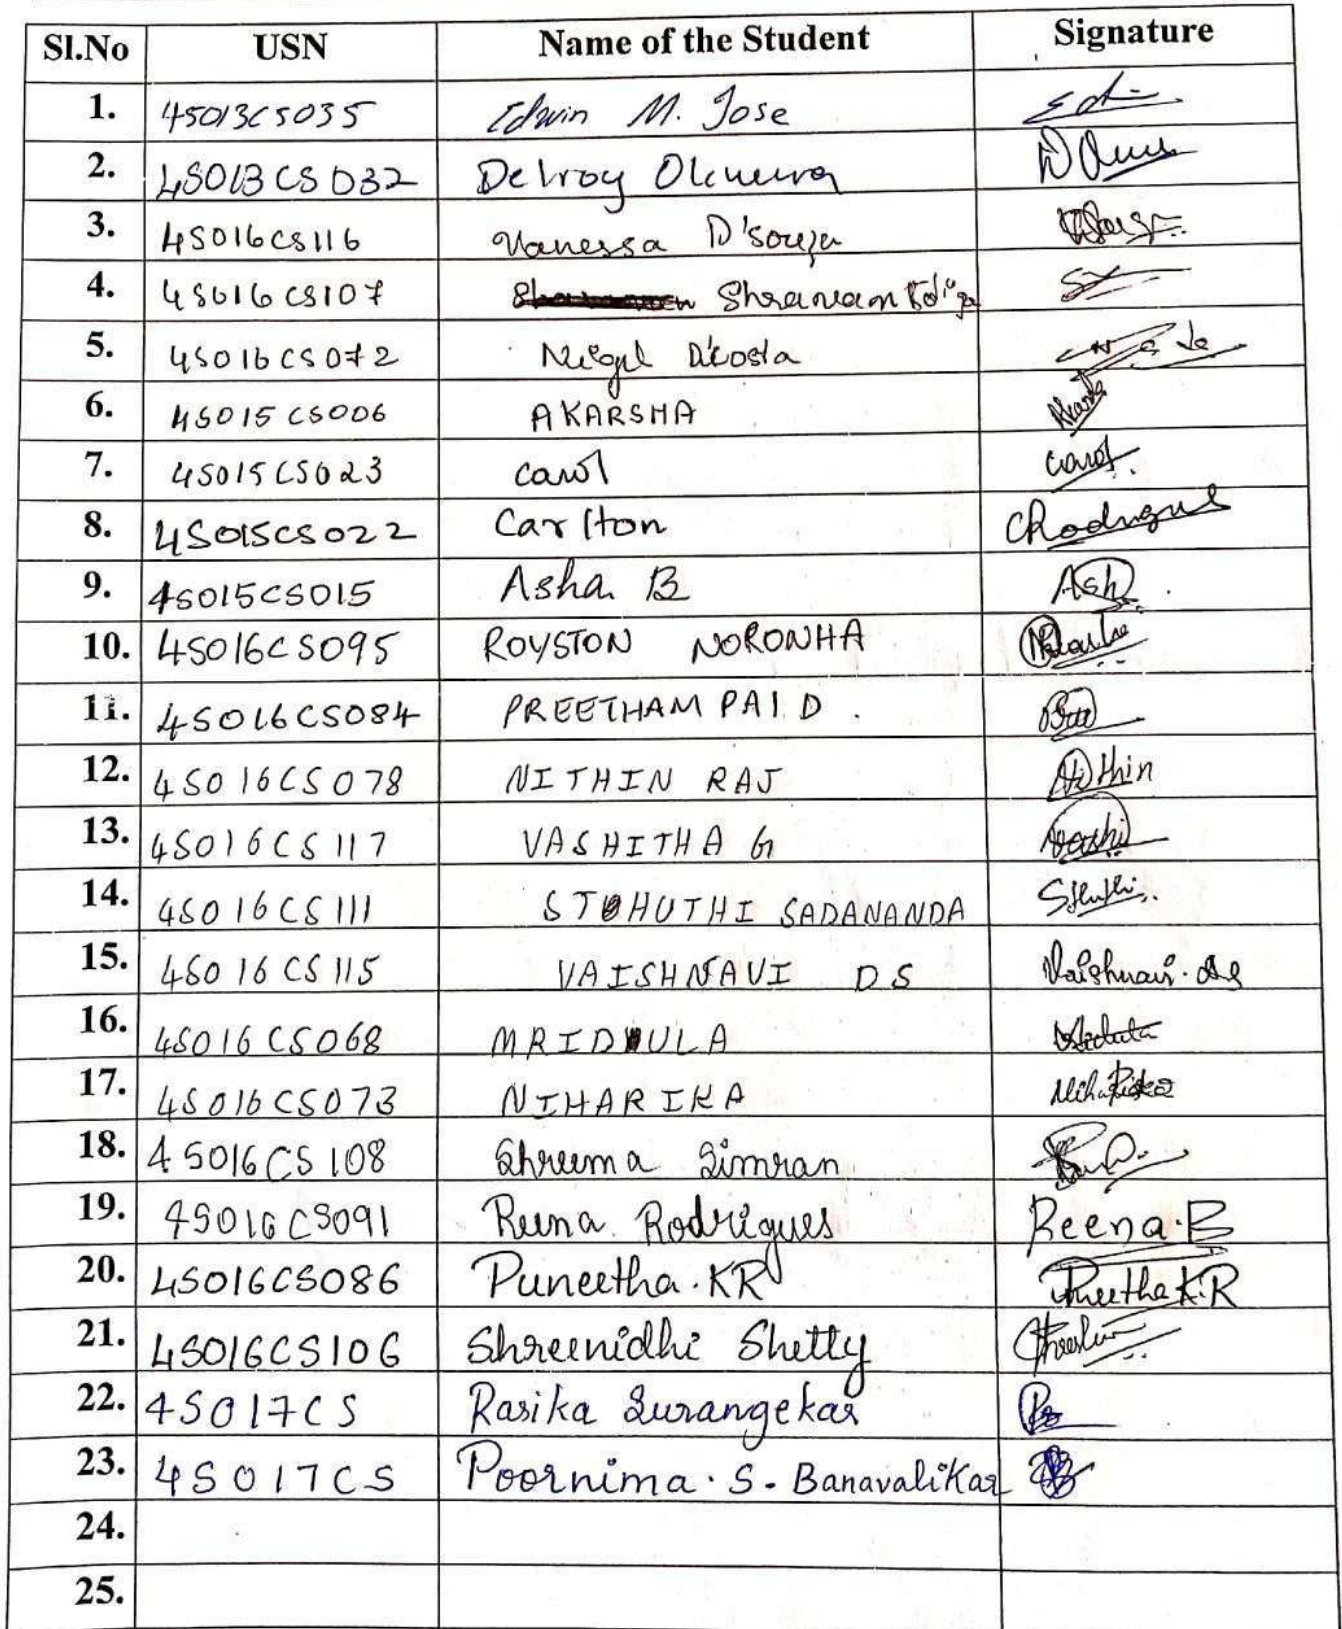 Sl.No USN Name of the Student Signature
1. 4SO13CS035 Edwin M. Jose
2. 4SO13CS032 Delroy
3. 4SO16CS116 Vanessa D'souza
4. 4SO16CS107 Shravan
5. 4SO16CS072 D'costa
6. 4SO15CS006 AKARSHA
7. 4SO15CS023 Carol Carol.
8. 4SO15CS022 Carlton CRodrigues
9. 4SO15CS015 Asha B Ash
10. 4SO16CS095 ROYSTON NORONHA
11. 4SO16CS084 PREETHAM PAI D.
12. 4SO16CS078 NITHIN RAJ Nithin
13. 4SO16CS117 VASHITHA G Vashi
14. 4SO16CS111 STHUTHI SADANANDA Sthuthi
15. 4SO16CS115 VAISHNAVI DS Vaishnavi. DS
16. 4SO16CS068 MRIDULA
17. 4SO16CS073 NIHARIKA Niharika
18. 4SO16CS108 Shreema Simran
19. 4SO16CS091 Reena Rodrigues Reena.R
20. 4SO16CS086 Puneetha.KR Puneetha K.R
21. 4SO16CS106 Shreenidhi Shetty
22. 4SO17CS Rasika Surangekar
23. 4SO17CS Poornima. S. Banavalikar
24.
25.